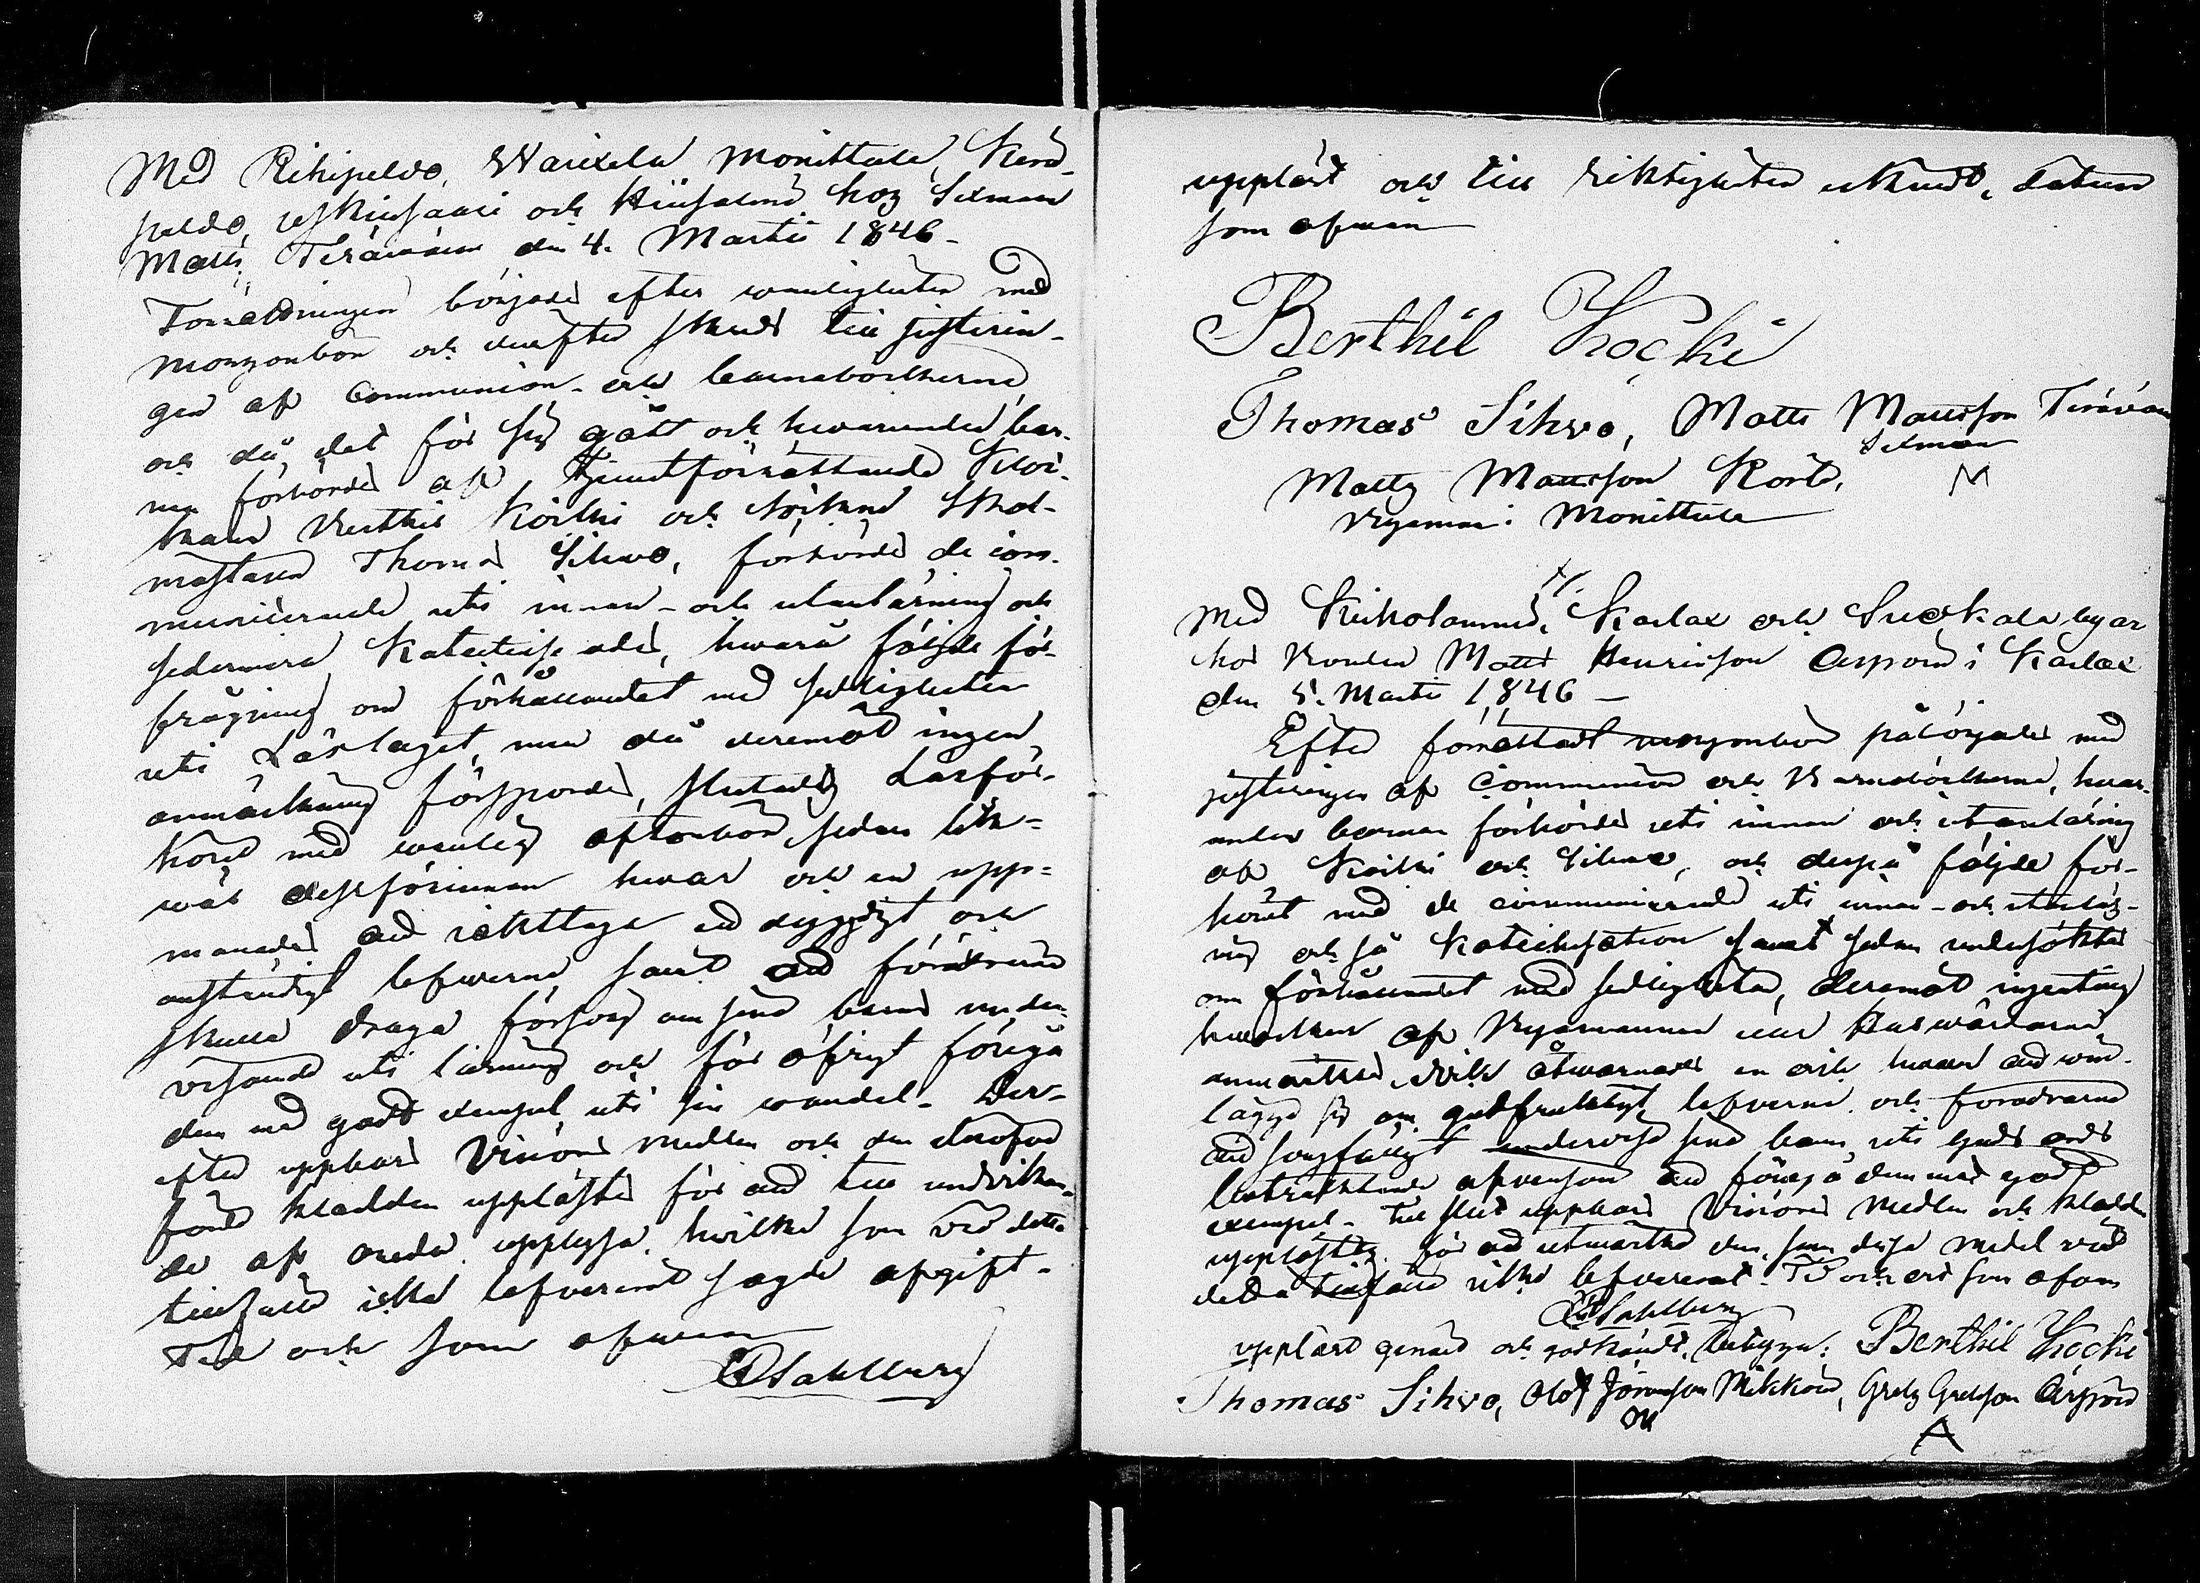 Med Rihipeldo, Warixela Monittula, Kärd-
peldo, och Hiifalmi hoz Sexman
Matts Teräväinen den 4. Martii 1846 -
Förrättningen börjades efter wanligheten med
morgonbön och derefter skreds till justerin-
gen af communion- och barnaböckerna
och då det för sig gått och hwarunder bar-
nen förhördes af Tjenstförrättande Kloc-
karen Berthil Köcki och Sockne Skol-
mästaren Thomas Sihvo, förhördes de com-
municerande uti innan- och utanläsning och
sedermera Katechiserades, hwarå följde för-
frågning om förhållandet med sedligheten
uti Läslaget, men då deremot ingen
anmärkning förspordes, slutades Läsför-
höret med wanlig aftonbön sedan lik-
wäl dessförinnan hwar och en upp-
manades att iakttaga ett dygdigt och
anständigt lefwerne, samt att föräldrarne
skulle draga försorg om sine barns under-
visande uti läsning och för öfrigt föregå
dem med godt exempel uti sin wandel. Der-
efter uppbars Visions medlen och den
förde kladden upplästes för att till undvikan-
de af oreda upplysa hwilka som vid detta
tillfälle icke lefvererat sagde afgift.
Tid och som ofwan
Stahlberg
uppläst och till riktigheten erkändt, datum
som ofwan
Berthil Kocki
Thomas Sihvo, Matts Mattsson Teräväin
Sexman
Matts Mattsson Korte, M
Byeman i Monittula
Med Keikolanniemi, Karlax och Suokala byar
hos Bonden Matts Henricsson Orpona i Karlax
den 5. Martii 1846 -
Efter förrättad morgonbön påbörjades med
justeringen af Communion och Barnaböckerna, hwar-
under barnen förhördes uti innan och utanläsning
af Köcki och Sihvo, och derpå följde för-
höret med de communicerande uti innan- och utanläs-
ning och så Katechisation samt sedan undersöktes
om förhållandet med sedligheten, deremot ingenting
hwarken af Byamannen eller Huswärdarne
anmärktes, dock åtwarnades en och hwar att win-
lägga sig om gudfruktigt lefverne och föräldrarne
att sorgfälligt undervisa sine barn uti Guds ords
betraktande äfvensom att föregå dem med godt
exempel. Till slut uppbars Visions Medlen och kladden
upplästes för att utmärka dem som dessa medel vid
detta tillfälle icke lefvererat. Tid och ort som ofvan
Stahlberg
uppläst genast och godkändt, betygar: Berthil Kocki
Thomas Sihvo, Olof Jöransson Mikkoin, Grels Grelsson Orpoin
OM A